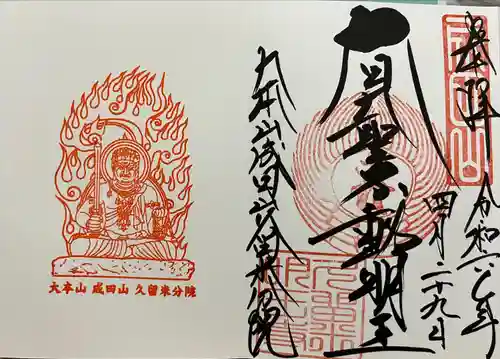 奉拝
令和六年
四月二十九日
聖不動明王
大本山成田山久留米分院
成田山
大本山 成田山 久留米分院